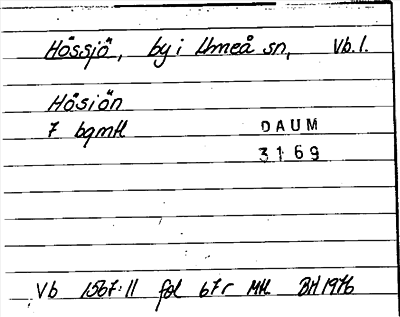 Hössjö, by i Umeå sn, Vb. l.
Hösiön
7 bgmtl
DAUM
3169
Vb 1567:11 fol 67r Mtl BH 1976